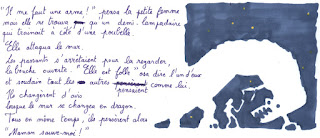 "Il me faut une arme!" pensa la petite femme
mais elle ne trouva qu'un demi-lampadaire
qui traînait à côté d'une poubelle.
Elle attaqua le mur.
Les passants s'arrêtaient pour la regarder,
la bouche ouverte. "Elle est folle" osa dire l'un d'eux
et soudain tous les autres pensaient comme lui.
Ils changèrent d'avis
lorsque le mur se changea en dragon.
Tous en même temps, ils pensèrent alors
"Maman sauve-moi!"